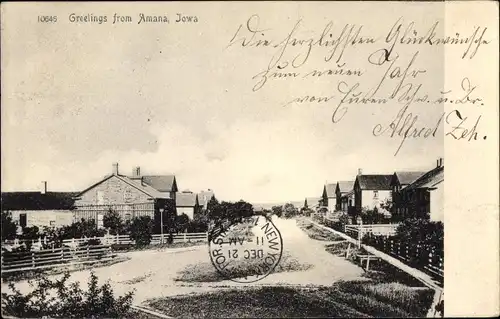 10646 Greetings from Amana, Iowa
Die herzlichsten Glückwünsche
zum neuen Jahr
von Euren Schw. u. Br.
Alfred Zeh.
NEW YOR
DEC 21
11 AM